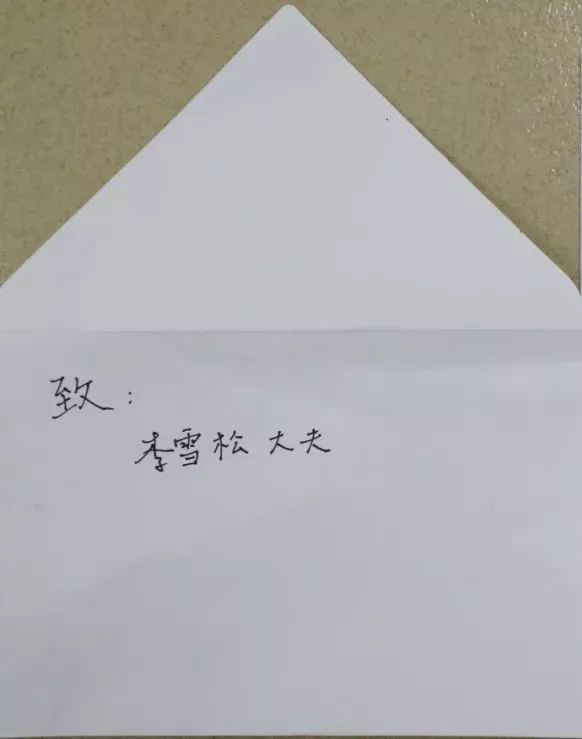 致：
李雪松 大夫